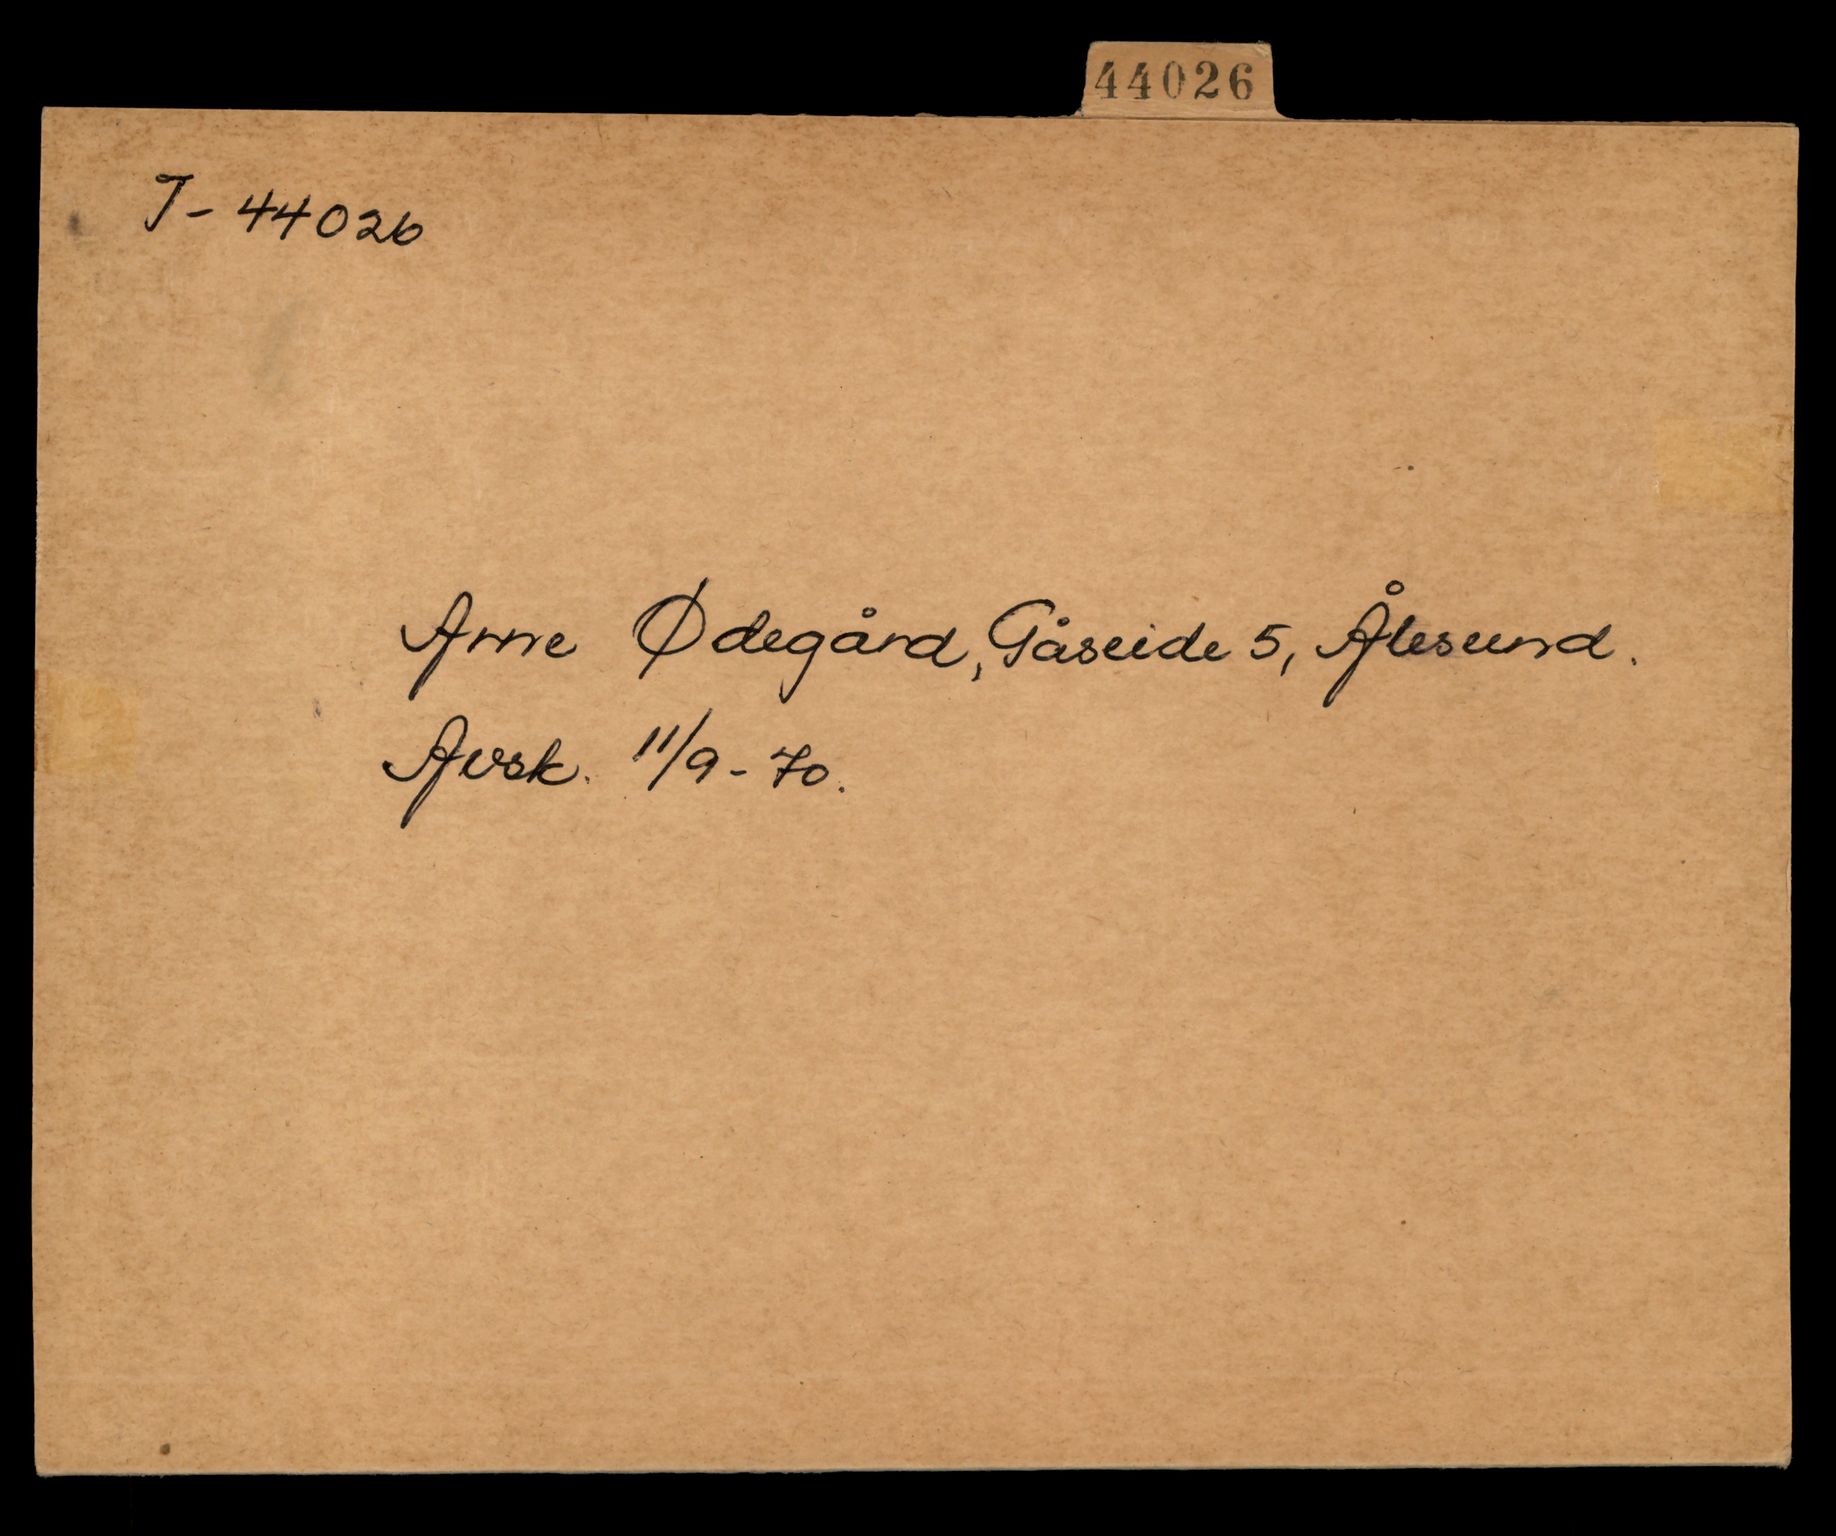 44026
T-44026
Arne Ødegård, Gåseide 5, Ålesund.
Avsk. 11/9-70.